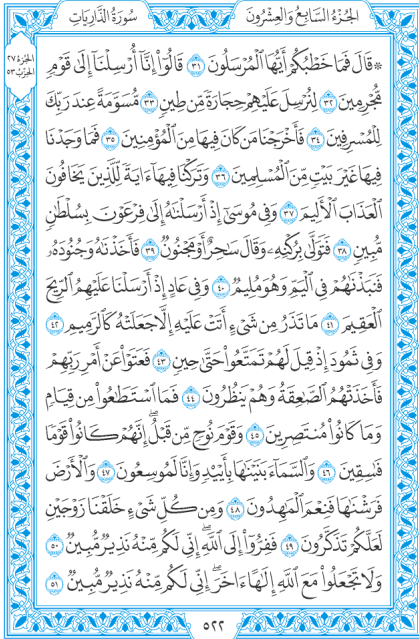 الجُزْءُ السَّابِعُ وَالعِشْرُونَ
سُورَةُ الذَّارِيَاتِ
الجُزْءُ ٢٧
الحِزْبُ ٥٣
۞ قَالَ فَمَا خَطْبُكُمْ أَيُّهَا ٱلْمُرْسَلُونَ ٣١ قَالُوٓا۟ إِنَّآ أُرْسِلْنَآ إِلَىٰ قَوْمٍ
مُّجْرِمِينَ ٣٢ لِنُرْسِلَ عَلَيْهِمْ حِجَارَةً مِّن طِينٍ ٣٣ مُّسَوَّمَةً عِندَ رَبِّكَ
لِلْمُسْرِفِينَ ٣٤ فَأَخْرَجْنَا مَن كَانَ فِيهَا مِنَ ٱلْمُؤْمِنِينَ ٣٥ فَمَا وَجَدْنَا
فِيهَا غَيْرَ بَيْتٍ مِّنَ ٱلْمُسْلِمِينَ ٣٦ وَتَرَكْنَا فِيهَآ ءَايَةً لِّلَّذِينَ يَخَافُونَ
ٱلْعَذَابَ ٱلْأَلِيمَ ٣٧ وَفِى مُوسَىٰٓ إِذْ أَرْسَلْنَٰهُ إِلَىٰ فِرْعَوْنَ بِسُلْطَٰنٍ
مُّبِينٍ ٣٨ فَتَوَلَّىٰ بِرُكْنِهِۦ وَقَالَ سَٰحِرٌ أَوْ مَجْنُونٌ ٣٩ فَأَخَذْنَٰهُ وَجُنُودَهُۥ
فَنَبَذْنَٰهُمْ فِى ٱلْيَمِّ وَهُوَ مُلِيمٌ ٤٠ وَفِى عَادٍ إِذْ أَرْسَلْنَا عَلَيْهِمُ ٱلرِّيحَ
ٱلْعَقِيمَ ٤١ مَا تَذَرُ مِن شَىْءٍ أَتَتْ عَلَيْهِ إِلَّا جَعَلَتْهُ كَٱلرَّمِيمِ ٤٢
وَفِى ثَمُودَ إِذْ قِيلَ لَهُمْ تَمَتَّعُوا۟ حَتَّىٰ حِينٍ ٤٣ فَعَتَوْا۟ عَنْ أَمْرِ رَبِّهِمْ
فَأَخَذَتْهُمُ ٱلصَّٰعِقَةُ وَهُمْ يَنظُرُونَ ٤٤ فَمَا ٱسْتَطَٰعُوا۟ مِن قِيَامٍ
وَمَا كَانُوا۟ مُنتَصِرِينَ ٤٥ وَقَوْمَ نُوحٍ مِّن قَبْلُ ۖ إِنَّهُمْ كَانُوا۟ قَوْمًا
فَٰسِقِينَ ٤٦ وَٱلسَّمَآءَ بَنَيْنَٰهَا بِأَيْي۟دٍ وَإِنَّا لَمُوسِعُونَ ٤٧ وَٱلْأَرْضَ
فَرَشْنَٰهَا فَنِعْمَ ٱلْمَٰهِدُونَ ٤٨ وَمِن كُلِّ شَىْءٍ خَلَقْنَا زَوْجَيْنِ
لَعَلَّكُمْ تَذَكَّرُونَ ٤٩ فَفِرُّوٓا۟ إِلَى ٱللَّهِ ۖ إِنِّى لَكُم مِّنْهُ نَذِيرٌ مُّبِينٌ ٥٠
وَلَا تَجْعَلُوا۟ مَعَ ٱللَّهِ إِلَٰهًا ءَاخَرَ ۖ إِنِّى لَكُم مِّنْهُ نَذِيرٌ مُّبِينٌ ٥١
٥٢٢